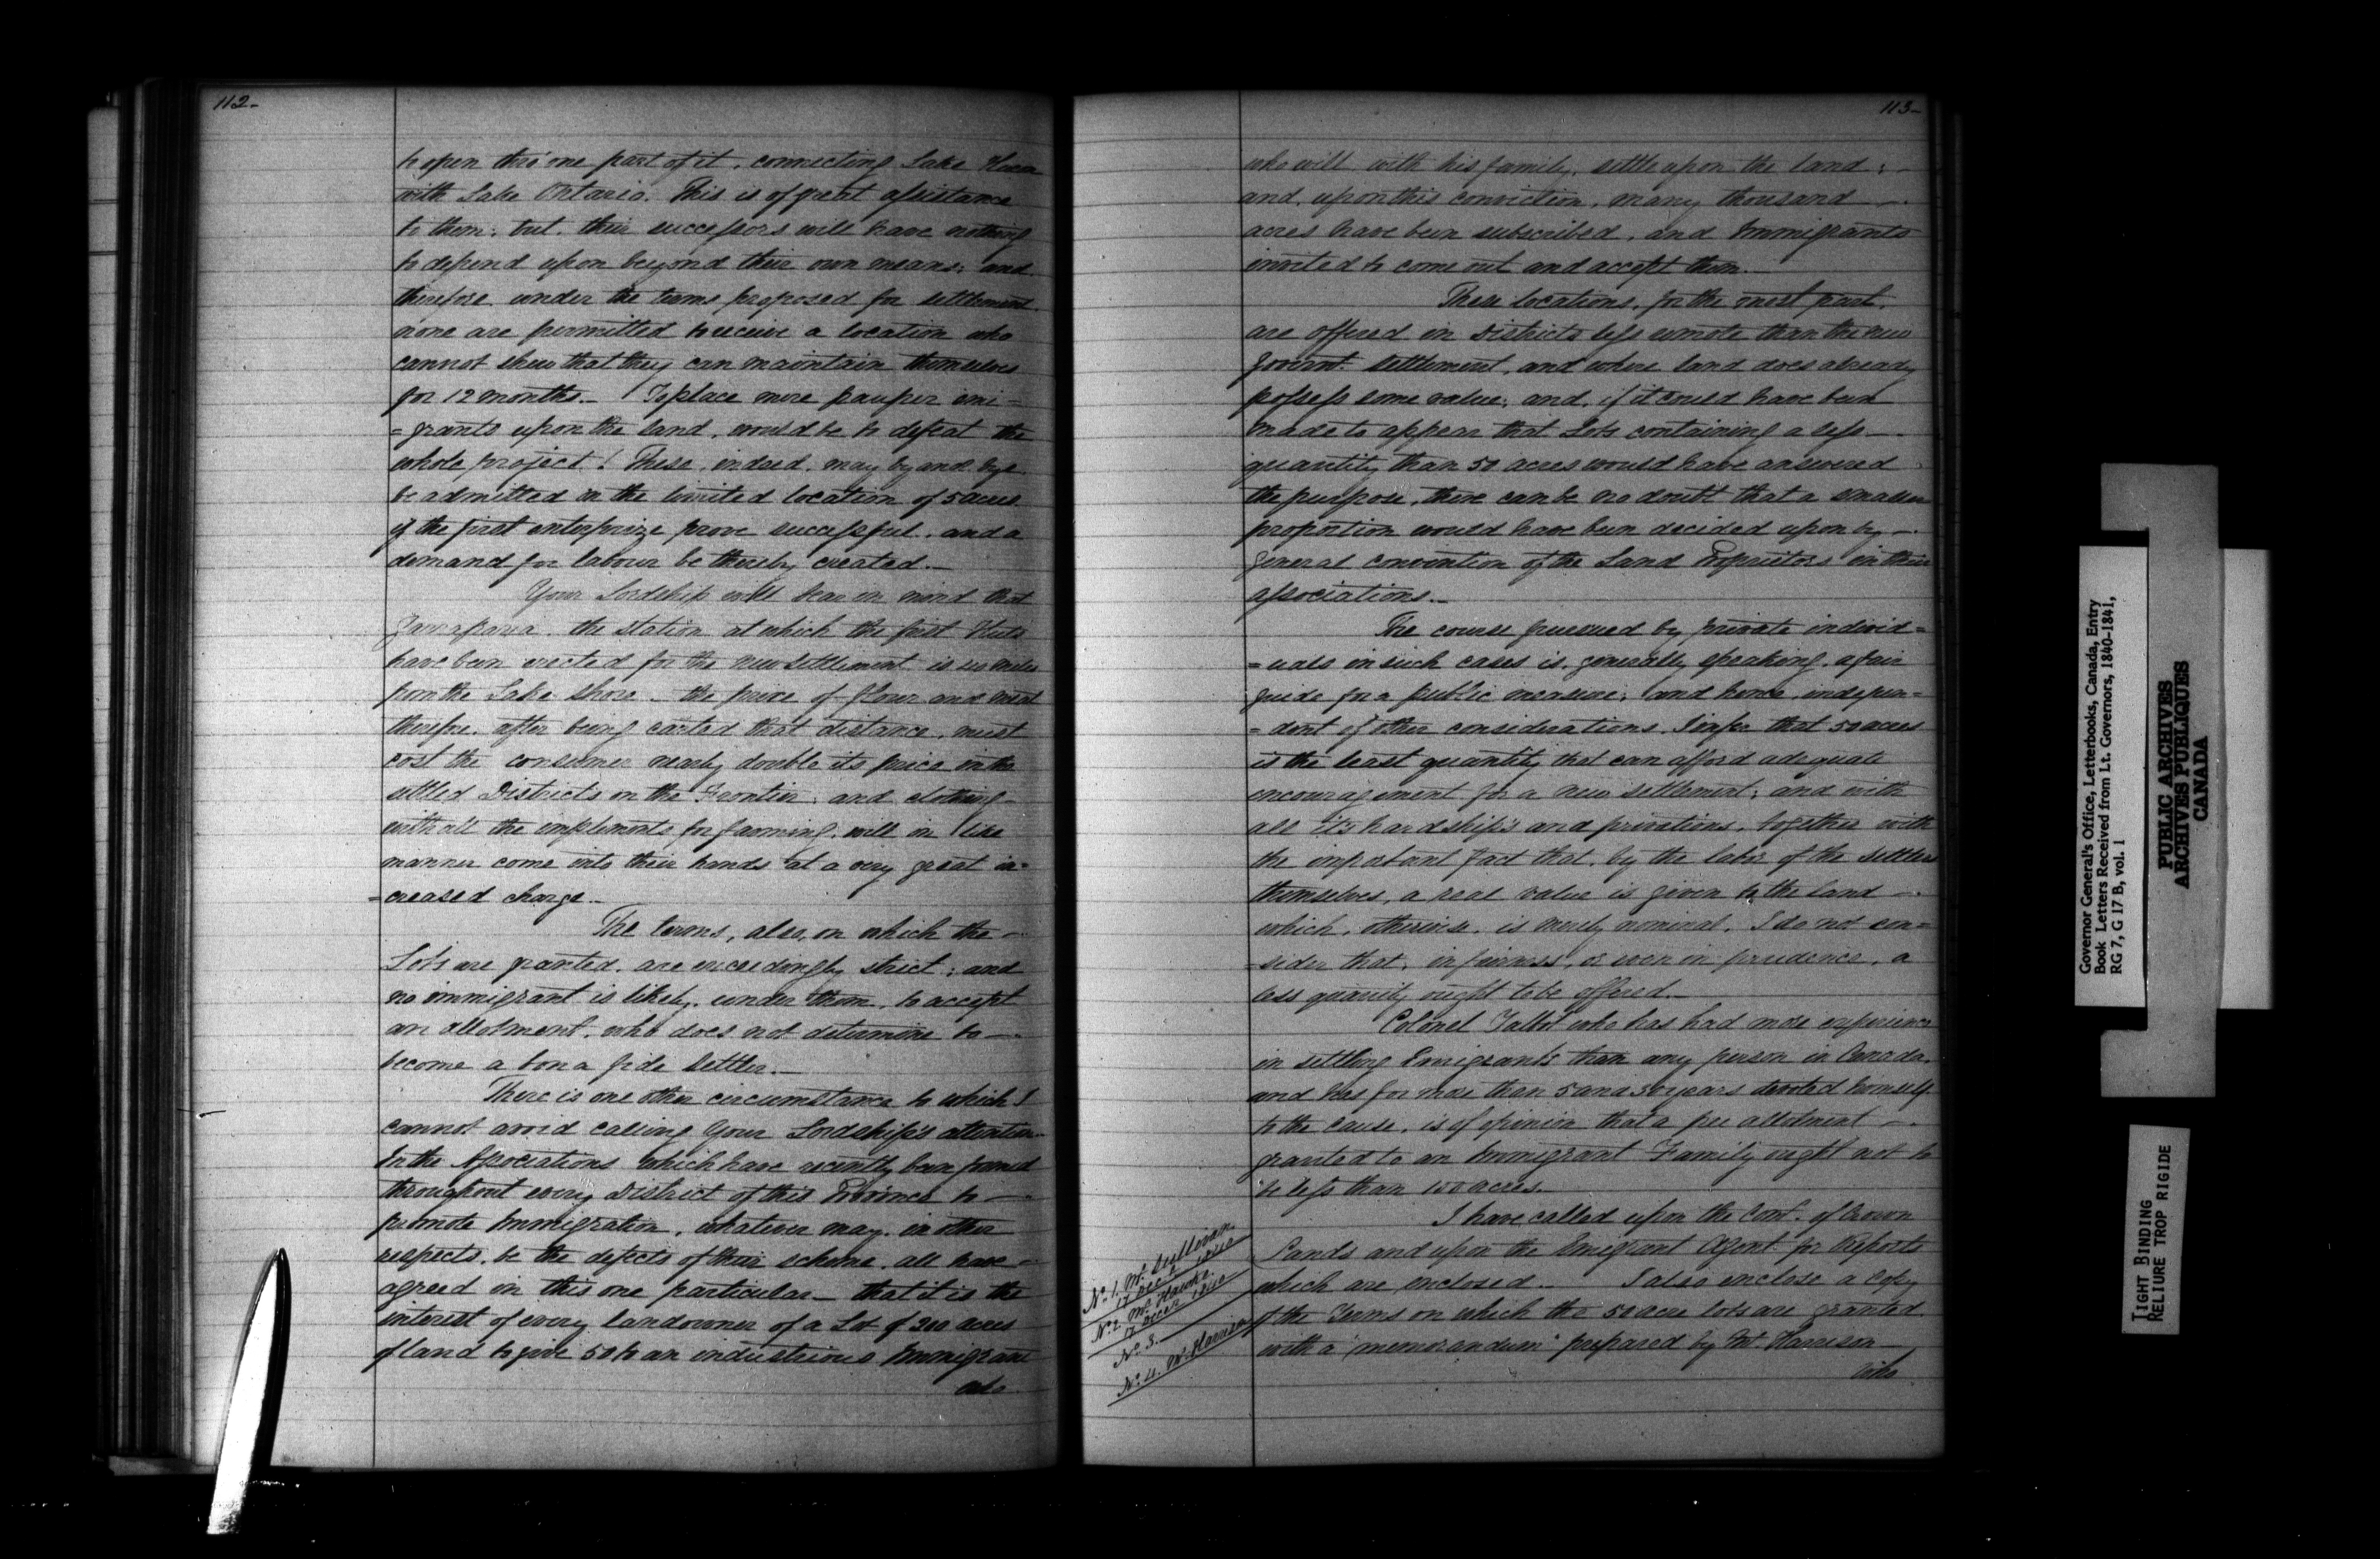 112-
to open thro' one part of it, connecting Lake Huron
with Lake Ontario. This is of great assistance
to them; but, their successors will have nothing
to depend upon beyond their own means; and
therefore under the terms proposed for settlement,
none are permitted to receive a location who
cannot shew that they can maintain themselves
for 12 months. — To place mere pauper emi=
=grants upon the land, would be to defeat the
whole project! These, indeed, may by and bye
be admitted in the limited location of 5 acres
if the first enterprize prove successful, and a
demand for labour be thereby created. —
Your Lordship will bear in mind that
Garrafraxa, the station at which the first Huts
have been erected for the new settlement is miles
from the Lake Shore — the price of flour and meat
therefore, after being carted that distance, must
cost the consumer nearly double its price in the
settled Districts on the Frontier; and clothing —
with all the implements for farming, will in like
manner come into their hands at a very great in=
=creased charge. —
The terms, also, on which the —
Lots are granted, are exceedingly strict; and
no immigrant is likely, under them, to accept
an allotment, who does not determine to —
become a bona fide Settler. —
There is one other circumstance to which I
cannot avoid calling Your Lordship's attention.
In the Associations which have recently been formed
throughout every District of this Province to —
promote Immigration, whatever may, in other
respects, be the defects of their scheme, all have —
agreed in this one particular — that it is the
interest of every landowner of a Lot of 200 acres
of land to give 50 to an industrious Immigrant
who
113-
who will with his family, settle upon the land; —
and, upon this conviction, many thousand —
acres have been subscribed, and Immigrants
invited to come out and accept them. —
These locations, for the most part,
are offered in Districts less remote than the new
Governt. settlement, and where land does already
possess some value; and, if it could have been
made to appear that Lots containing a less —
quantity than 50 acres would have answered
the purpose, there can be no doubt that a smaller
proportion would have been decided upon by —
general convention of the Land Proprietors in their
associations. —
The course pursued by private individ=
=uals in such cases is, generally speaking, a fair
guide for a public measure; and hence, indepen=
=dent of other considerations, I infer that 50 acres
is the least quantity that can afford adequate
encouragement for a new settlement; and with
all its hardships and privations, together with
the important fact that, by the labor of the Settlers
themselves, a real value is given to the land —
which, otherwise, is merely nominal, I do not con=
=sider that, in fairness, or even in prudence, a
less quantity ought to be offered. —
Colonel Talbot who has had more experience
in settling Emigrants than any person in Canada,
and has for more than 5 and 30 years devoted himself
to the cause, is of opinion that a free allotment —
granted to an Immigrant Family ought not to
be less than 100 acres. —
I have called upon the Comr. of Crown
Lands and upon the Emigrant Agent for Reports
which are enclosed. — I also enclose a Copy
of the Terms on which the 50 acre lots are granted
with a "memorandum" prepared by Mr. Harrison —
who
No. 1. Mr. Sullivan
17 Decr. 1840
No. 2. Mr. Hawke
17 Decr. 1840
No. 3. —
No. 4. Mr. Harrison
Governor General's Office, Letterbooks, Canada, Entry
Book Letters Received from Lt. Governors, 1840-1841,
RG 7, G 17 B, vol. 1
PUBLIC ARCHIVES
ARCHIVES PUBLIQUES
CANADA
TIGHT BINDING
RELIURE TROP RIGIDE